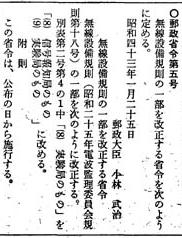 ○郵政省令第五号
無線設備規則の一部を改正する省令を次のよう
に定める。
昭和四十三年一月二十五日
郵政大臣 小林 武治
無線設備規則の一部を改正する省令
無線設備規則(昭和二十五年電波監理委員会規
則第十八号)の一部を次のように改正する。
別表第二号第4の1中「(8) 実験局のもの」を
「(8) 信号報知局のもの
(9) 実験局のもの」に改める。
附 則
この省令は、公布の日から施行する。